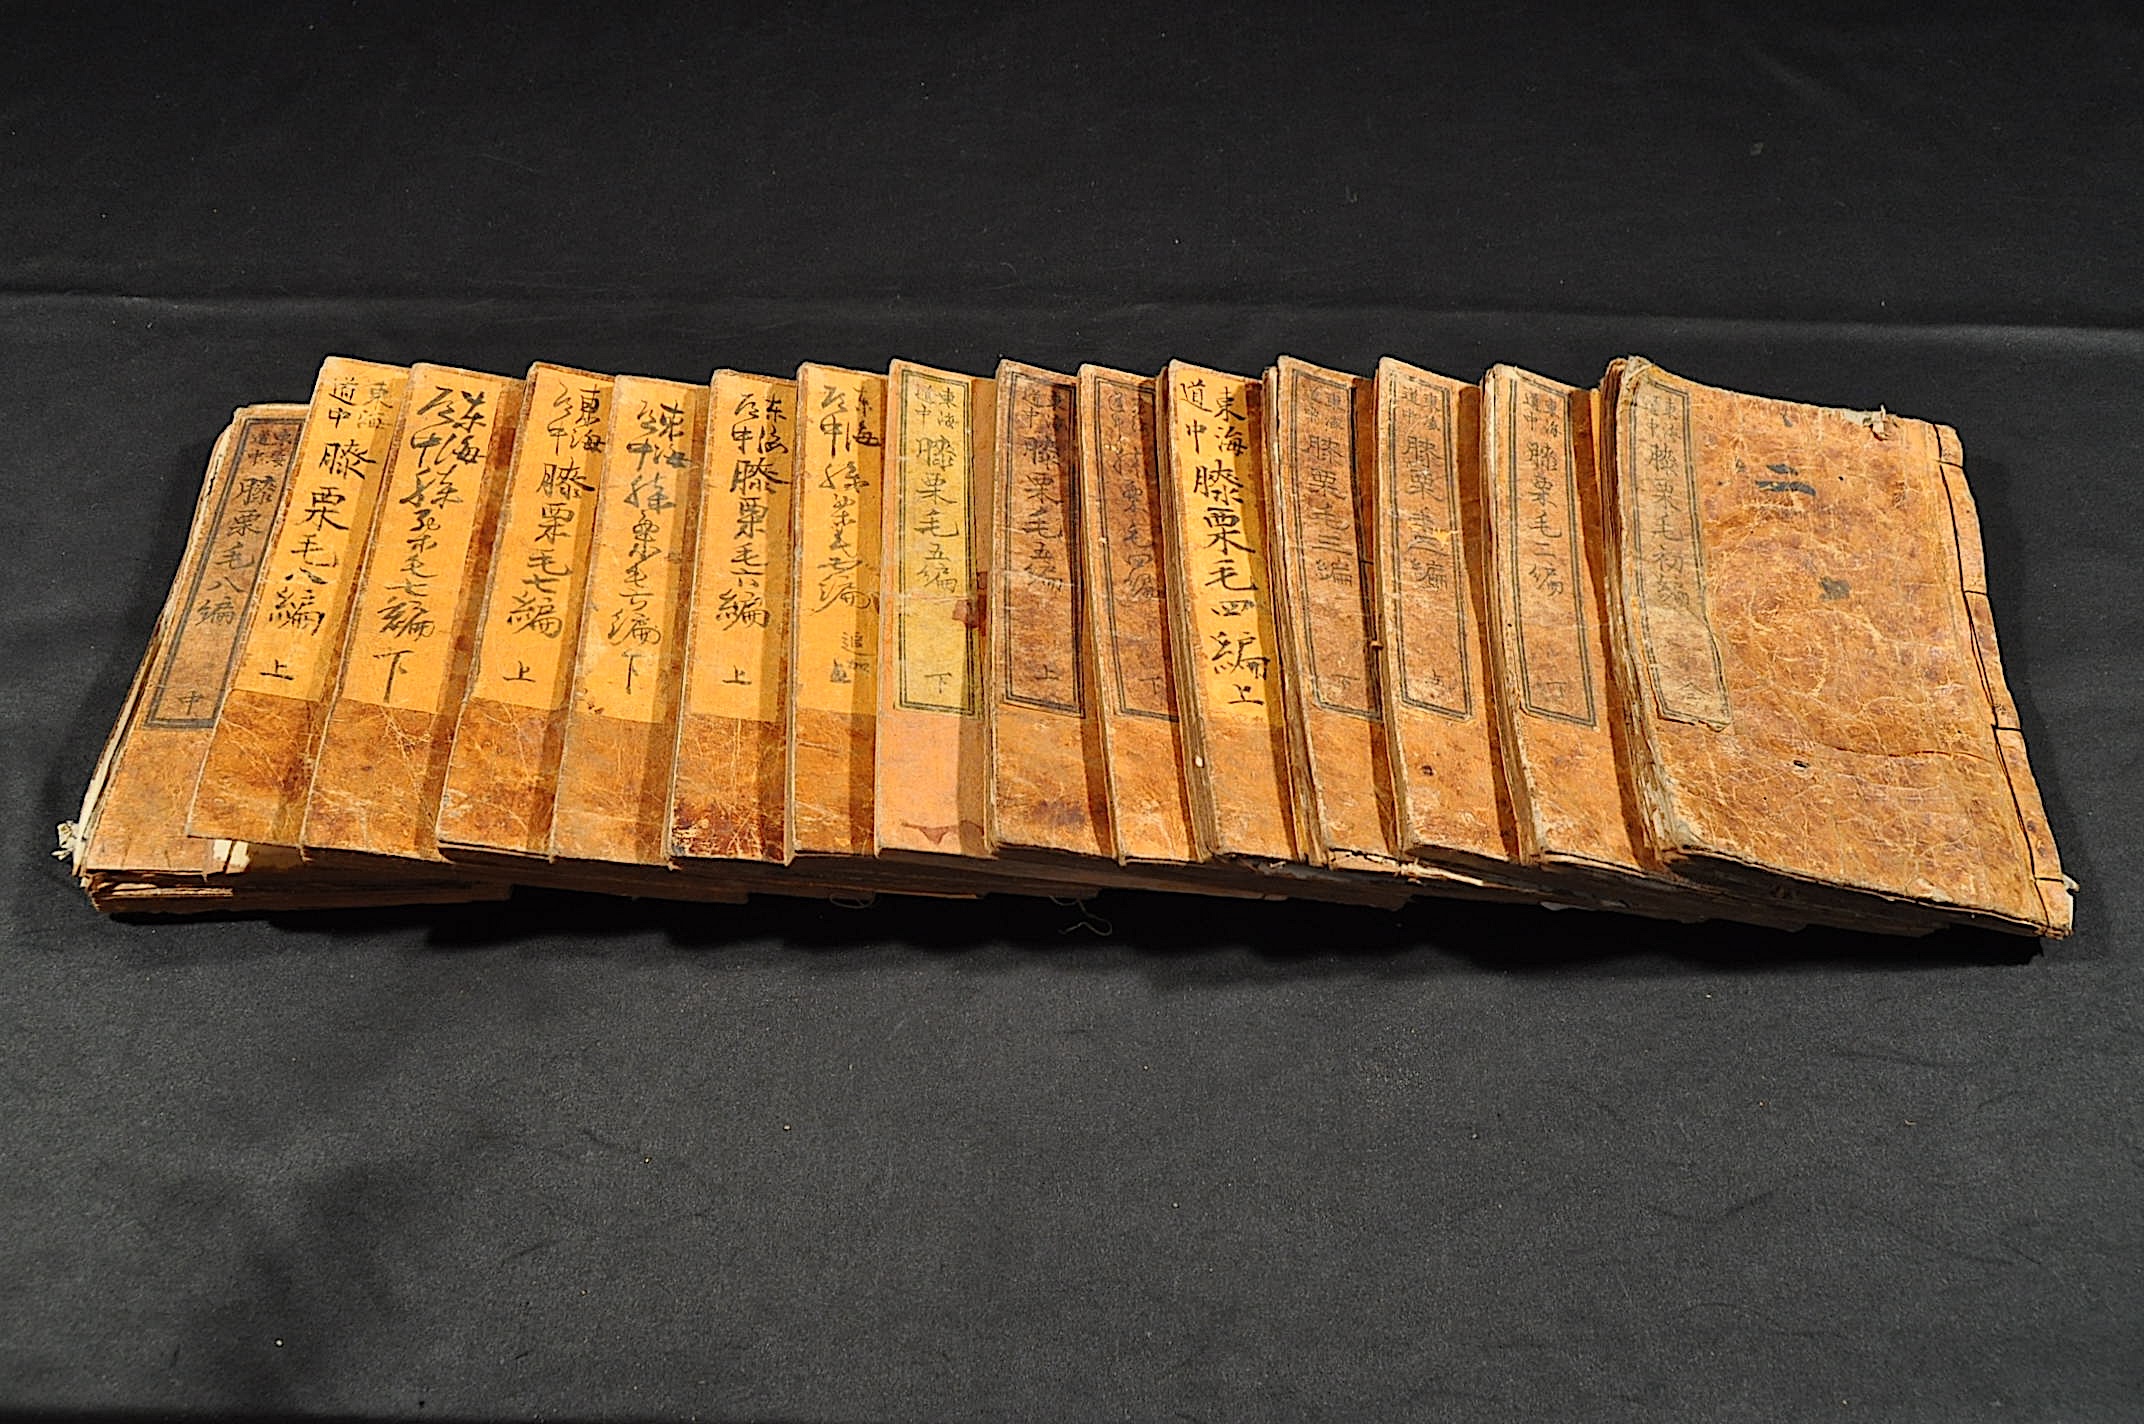 東海
道中
膝栗毛初編
全
二
東海
道中
膝栗毛二編
下
東海
道中
膝栗毛三編
上
東海
道中
膝栗毛三編
下
東海
道中
膝栗毛四編
上
東海
道中
膝栗毛四編
下
東海
道中
膝栗毛五編
上
東海
道中
膝栗毛五編
下
東海
道中
膝栗毛五編
追加
東海
道中
膝栗毛六編
上
東海
道中
膝栗毛六編
下
東海
道中
膝栗毛七編
上
東海
道中
膝栗毛七編
下
東海
道中
膝栗毛八編
上
東海
道中
膝栗毛八編
中